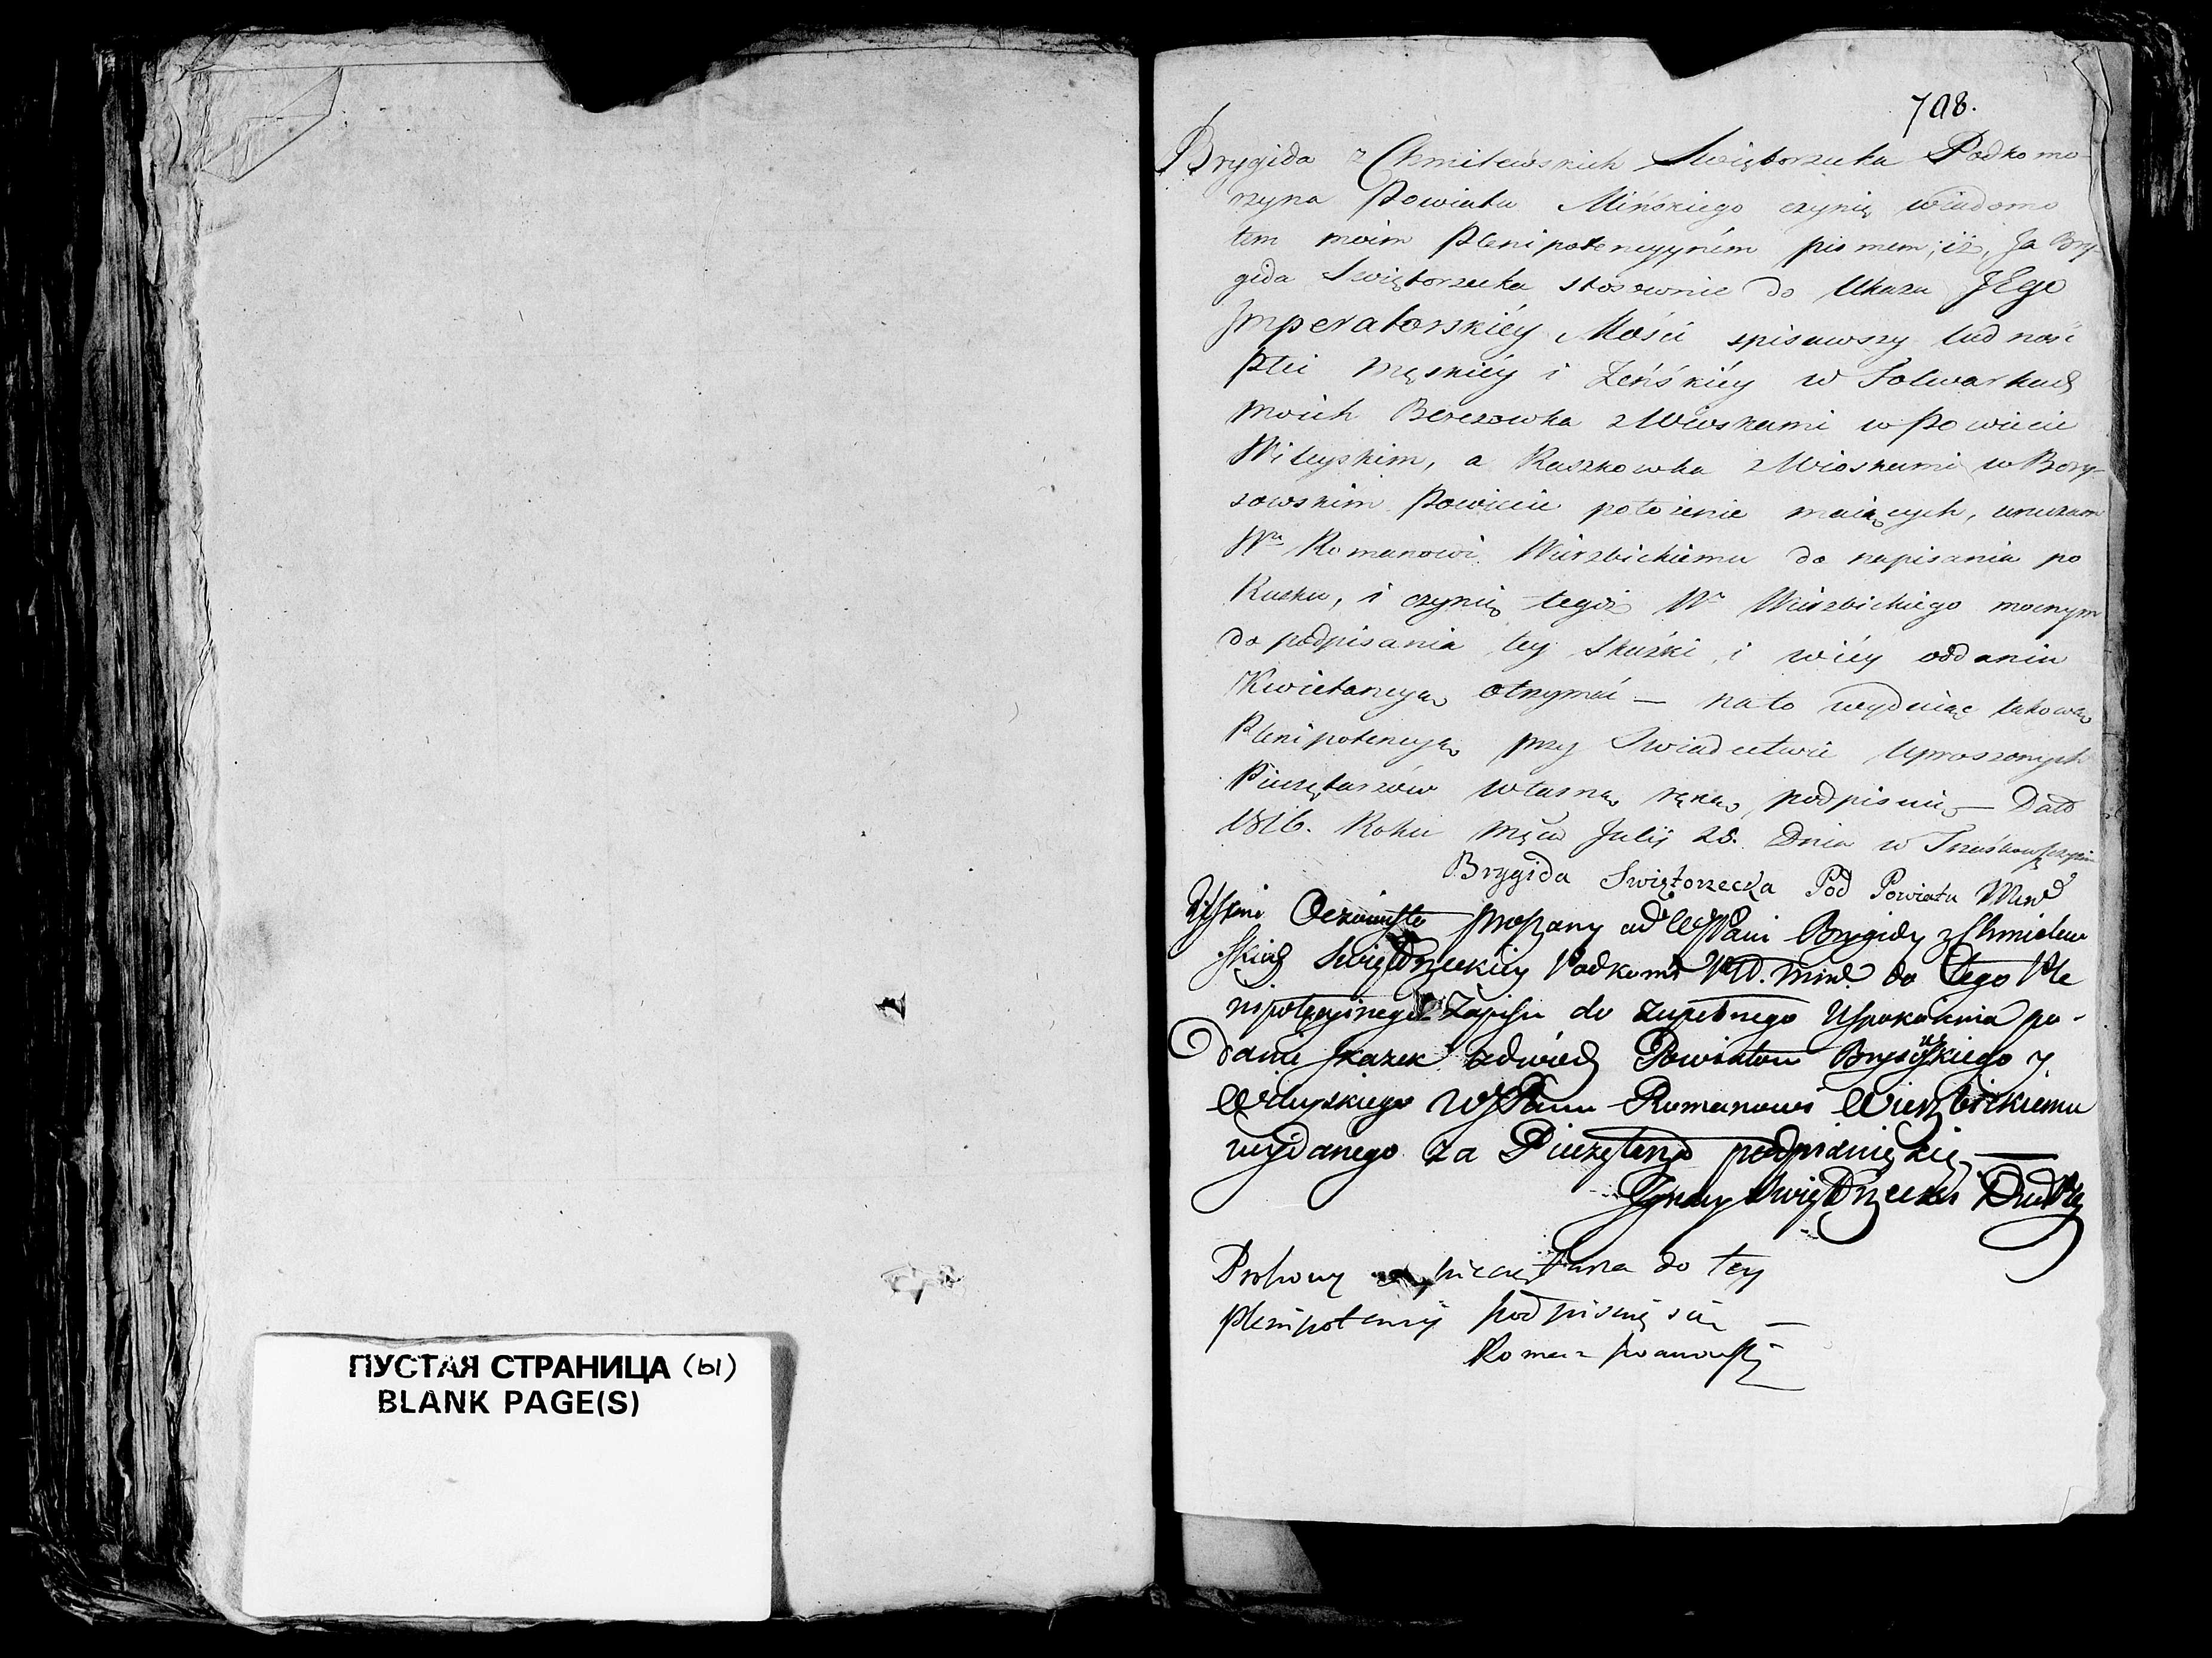 ПУСТАЯ СТРАНИЦА (ы)
BLANK PAGE(S)
708.
Brygida z Chmilewskich Swiętorzecka Podkomo-
rzyna Powiatu Mińskiego czynię wiadomo
tem moim Plenipotencyynem pismem; iż, Ja Bry-
gida Swiętorzecka stosownie do Ukazu JEgo
Imperatorskiéy Mości spisawszy ludność
Płci męskiéy i Żeńskiéy w Folwarkach
moich Berezowka z Wioskami w Powiecie
Wileyskim, a Raszkowka z Wioskami w Bory-
sowskim Powiecie położenie maiących,
Wu Romanowi Wierzbickiemu do napisania po
Rusku, i czynię tegoż Wo Wierzbickiego mocnym
do podpisania tey Skazki, i wiéy oddaniu
Kwietancyą otrzymać — na to wydaiąc takową
Plenipotencyą przy Swiadectwie Uproszonych
Pieczętarzów własną ręką podpisuię — Dato
1816. Roku Mca Julij 28. Dnia w
Brygida Swiętorzecka Pod Powiatu Miń
Oczewisto proszony od WJPani Brygidy z Chmielew
skich Swiętorzeckiey Podkom Ptu. Miń. do tego Ple
nipotencyinego Zapisu do zupełnego Uspokoienia po-
dania skazek z dwóch Powiatow Borysowskiego y
Wileyskiego WJPanu Romanowi Wierzbickiemu
wydanego za Pieczętarza podpisuię się —
Ignacy Swiętorzecki
Proszony za pieczętarza do tey
plenipotencyi podpisuię się —
Roman